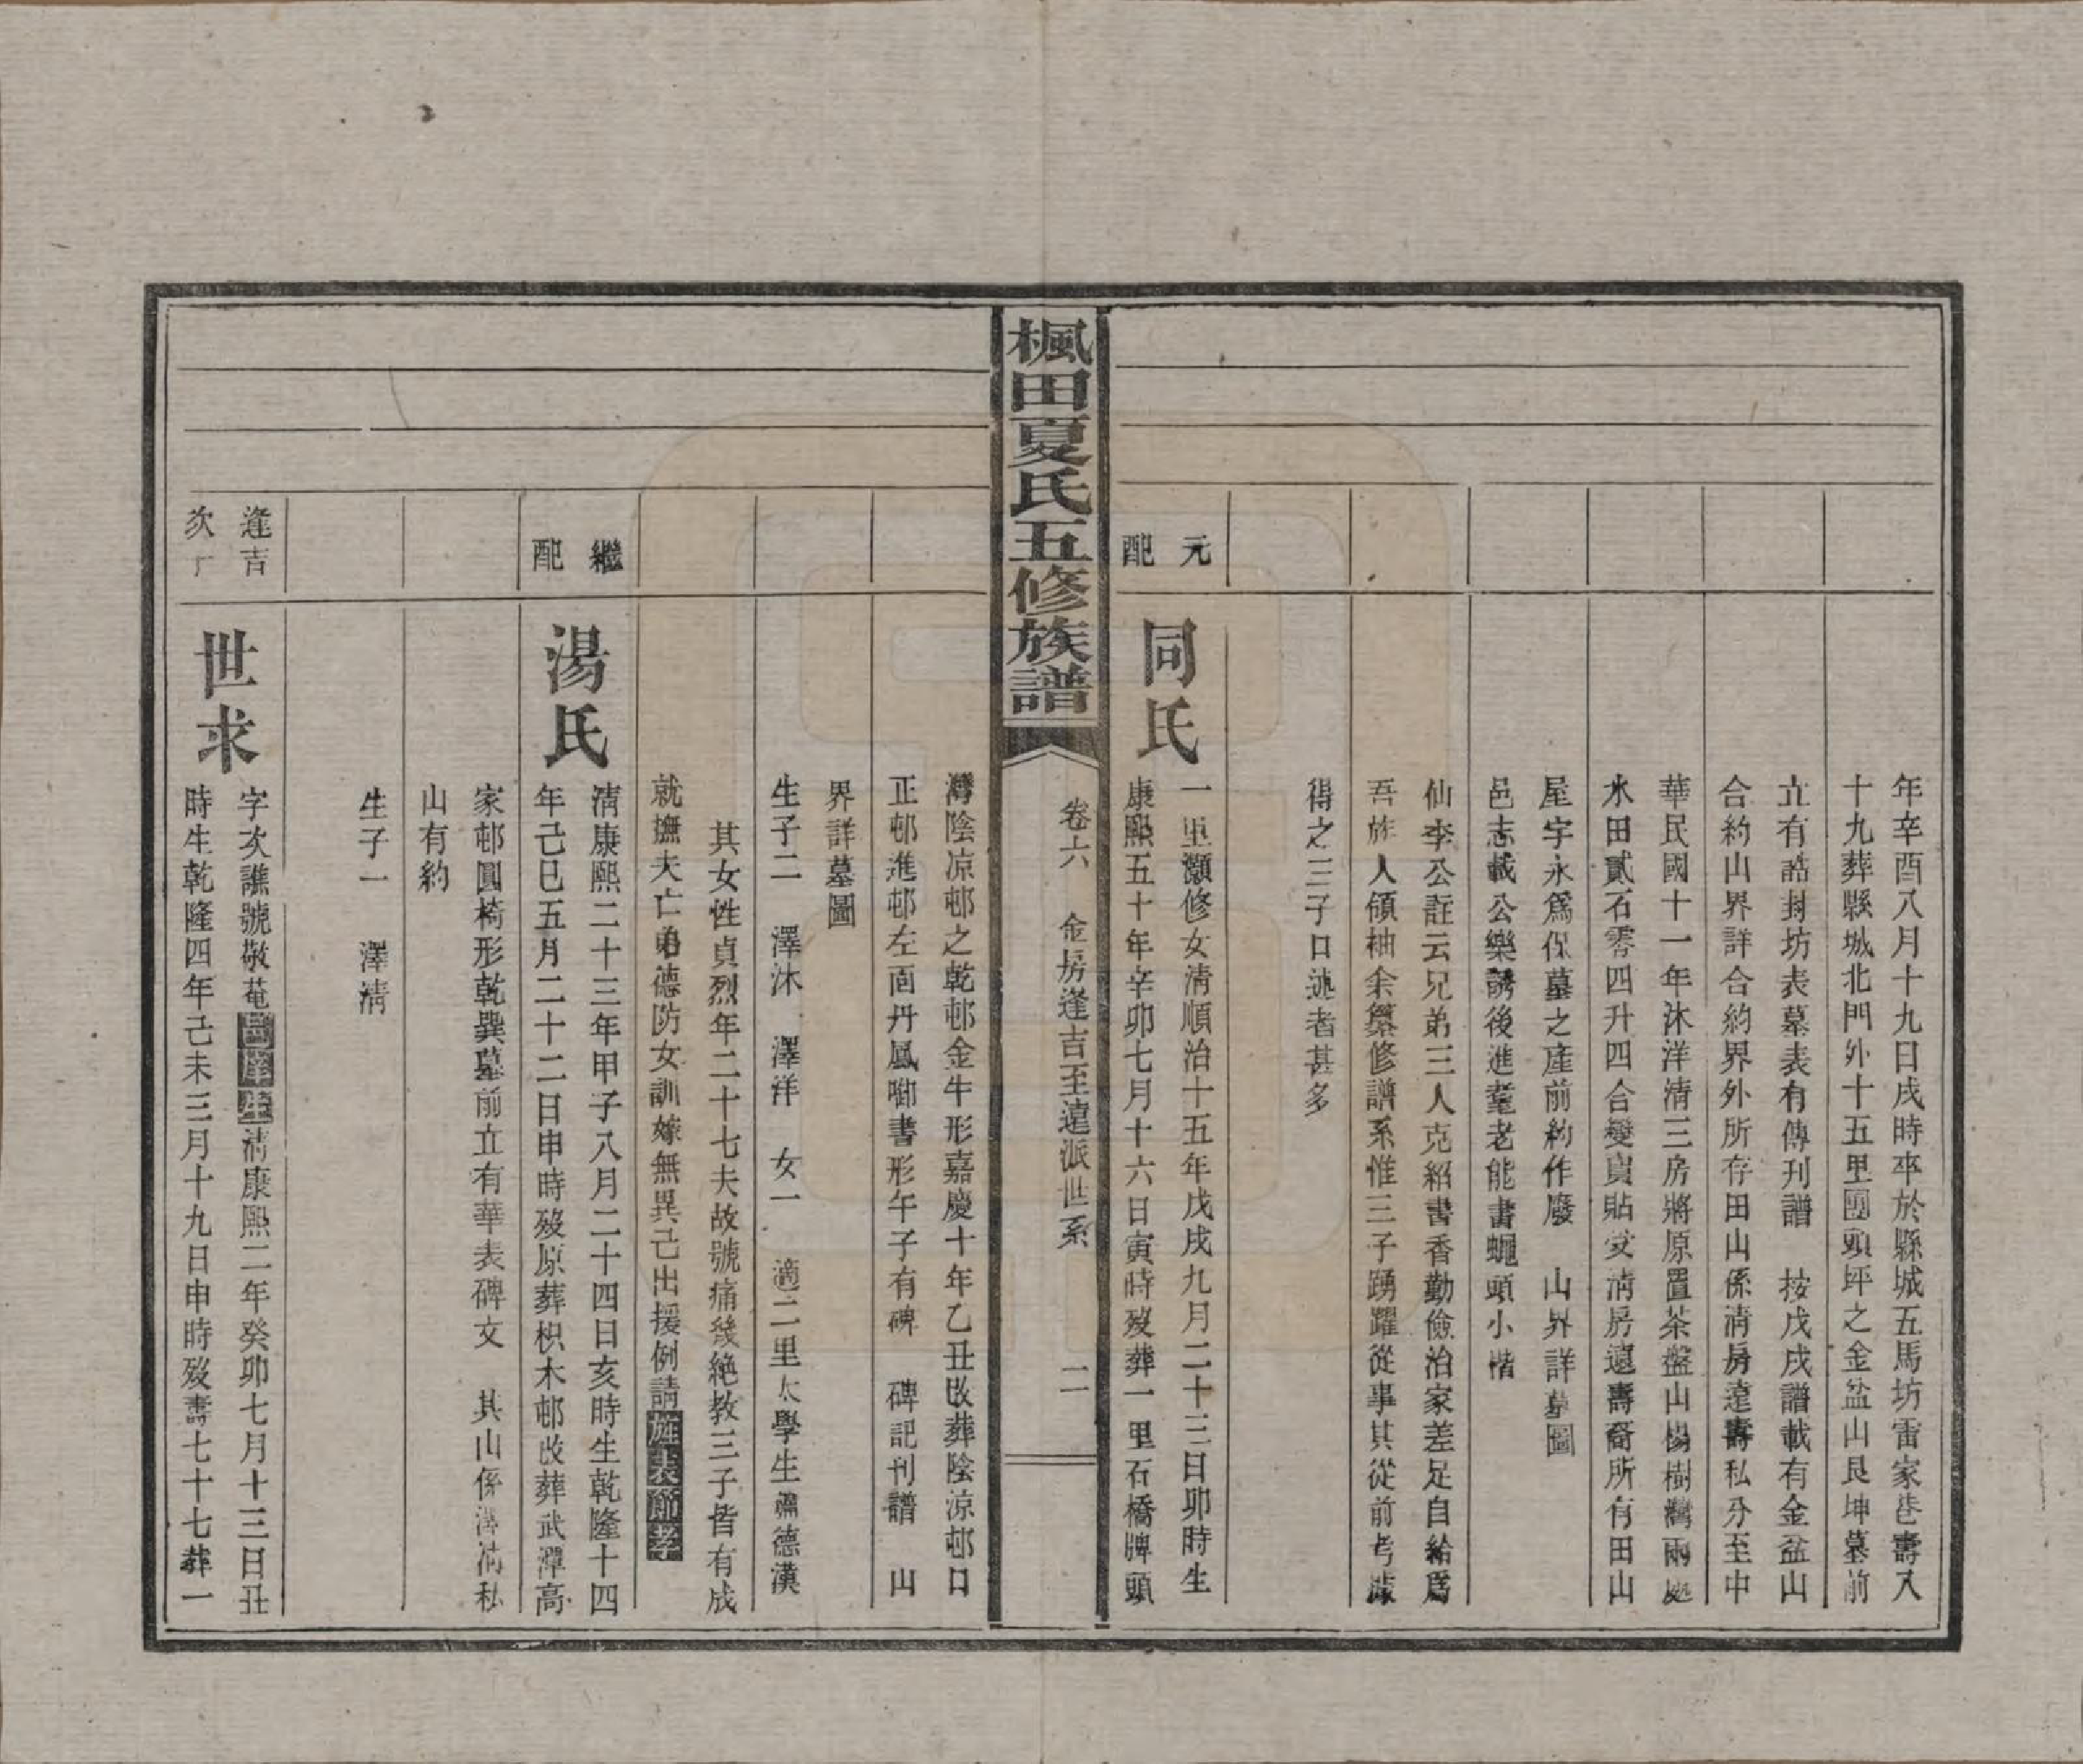 年辛酉八月十九日戌時卒於縣城五馬坊雷家巷壽八
十九葬縣城北門外十五里團頭坪之金盆山艮坤墓前
立有誥封坊表墓表有傳刊譜 按戊戌譜載有金盆山
合約山界詳合約界外所存田山係淸房遠壽私分至中
華民國十一年沐洋淸三房將原置茶盤山楊樹灣兩處
水田貳石零四升四合變賣貼安淸房遠壽裔所有田山
屋宇永爲保墓之產前約作廢 山界詳墓圖
邑志載公樂誘後進耄老能書蠅頭小楷
仙李公註云兄弟三人克紹書香勤儉治家差足自給爲
吾族人領袖余纂修譜系惟三子踴躍從事其從前考據
得之三子口述者甚多
元配
同氏
一里灝修女淸順治十五年戊戌九月二十三日卯時生
康熙五十年辛卯七月十六日寅時歿葬一里石橋牌頭
楓田夏氏五修族譜
卷六 金房逢吉至遠派世系 二
灣陰凉邨之乾邨金牛形嘉慶十年乙丑改葬陰凉邨口
正邨進邨左面丹鳳啣書形午子有碑 碑記刊譜 山
界詳墓圖
生子二 澤沐 澤洋 女一 適二里太學生蕭德漢
其女性貞烈年二十七夫故號痛幾絶敎三子皆有成
就撫夫亡弟德防女訓嫁無異己出援例請旌表節孝
繼配
湯氏
淸康熙二十三年甲子八月二十四日亥時生乾隆十四
年己巳五月二十二日申時歿原葬枳木邨改葬武潭高
家邨圓椅形乾巽墓前立有華表碑文 其山係澤淸私
山有約
生子一 澤淸
逢吉
次
世求
字次譙號敬菴邑庠生淸康熙二年癸卯七月十三日丑
時生乾隆四年己未三月十九日申時歿壽七十七葬一